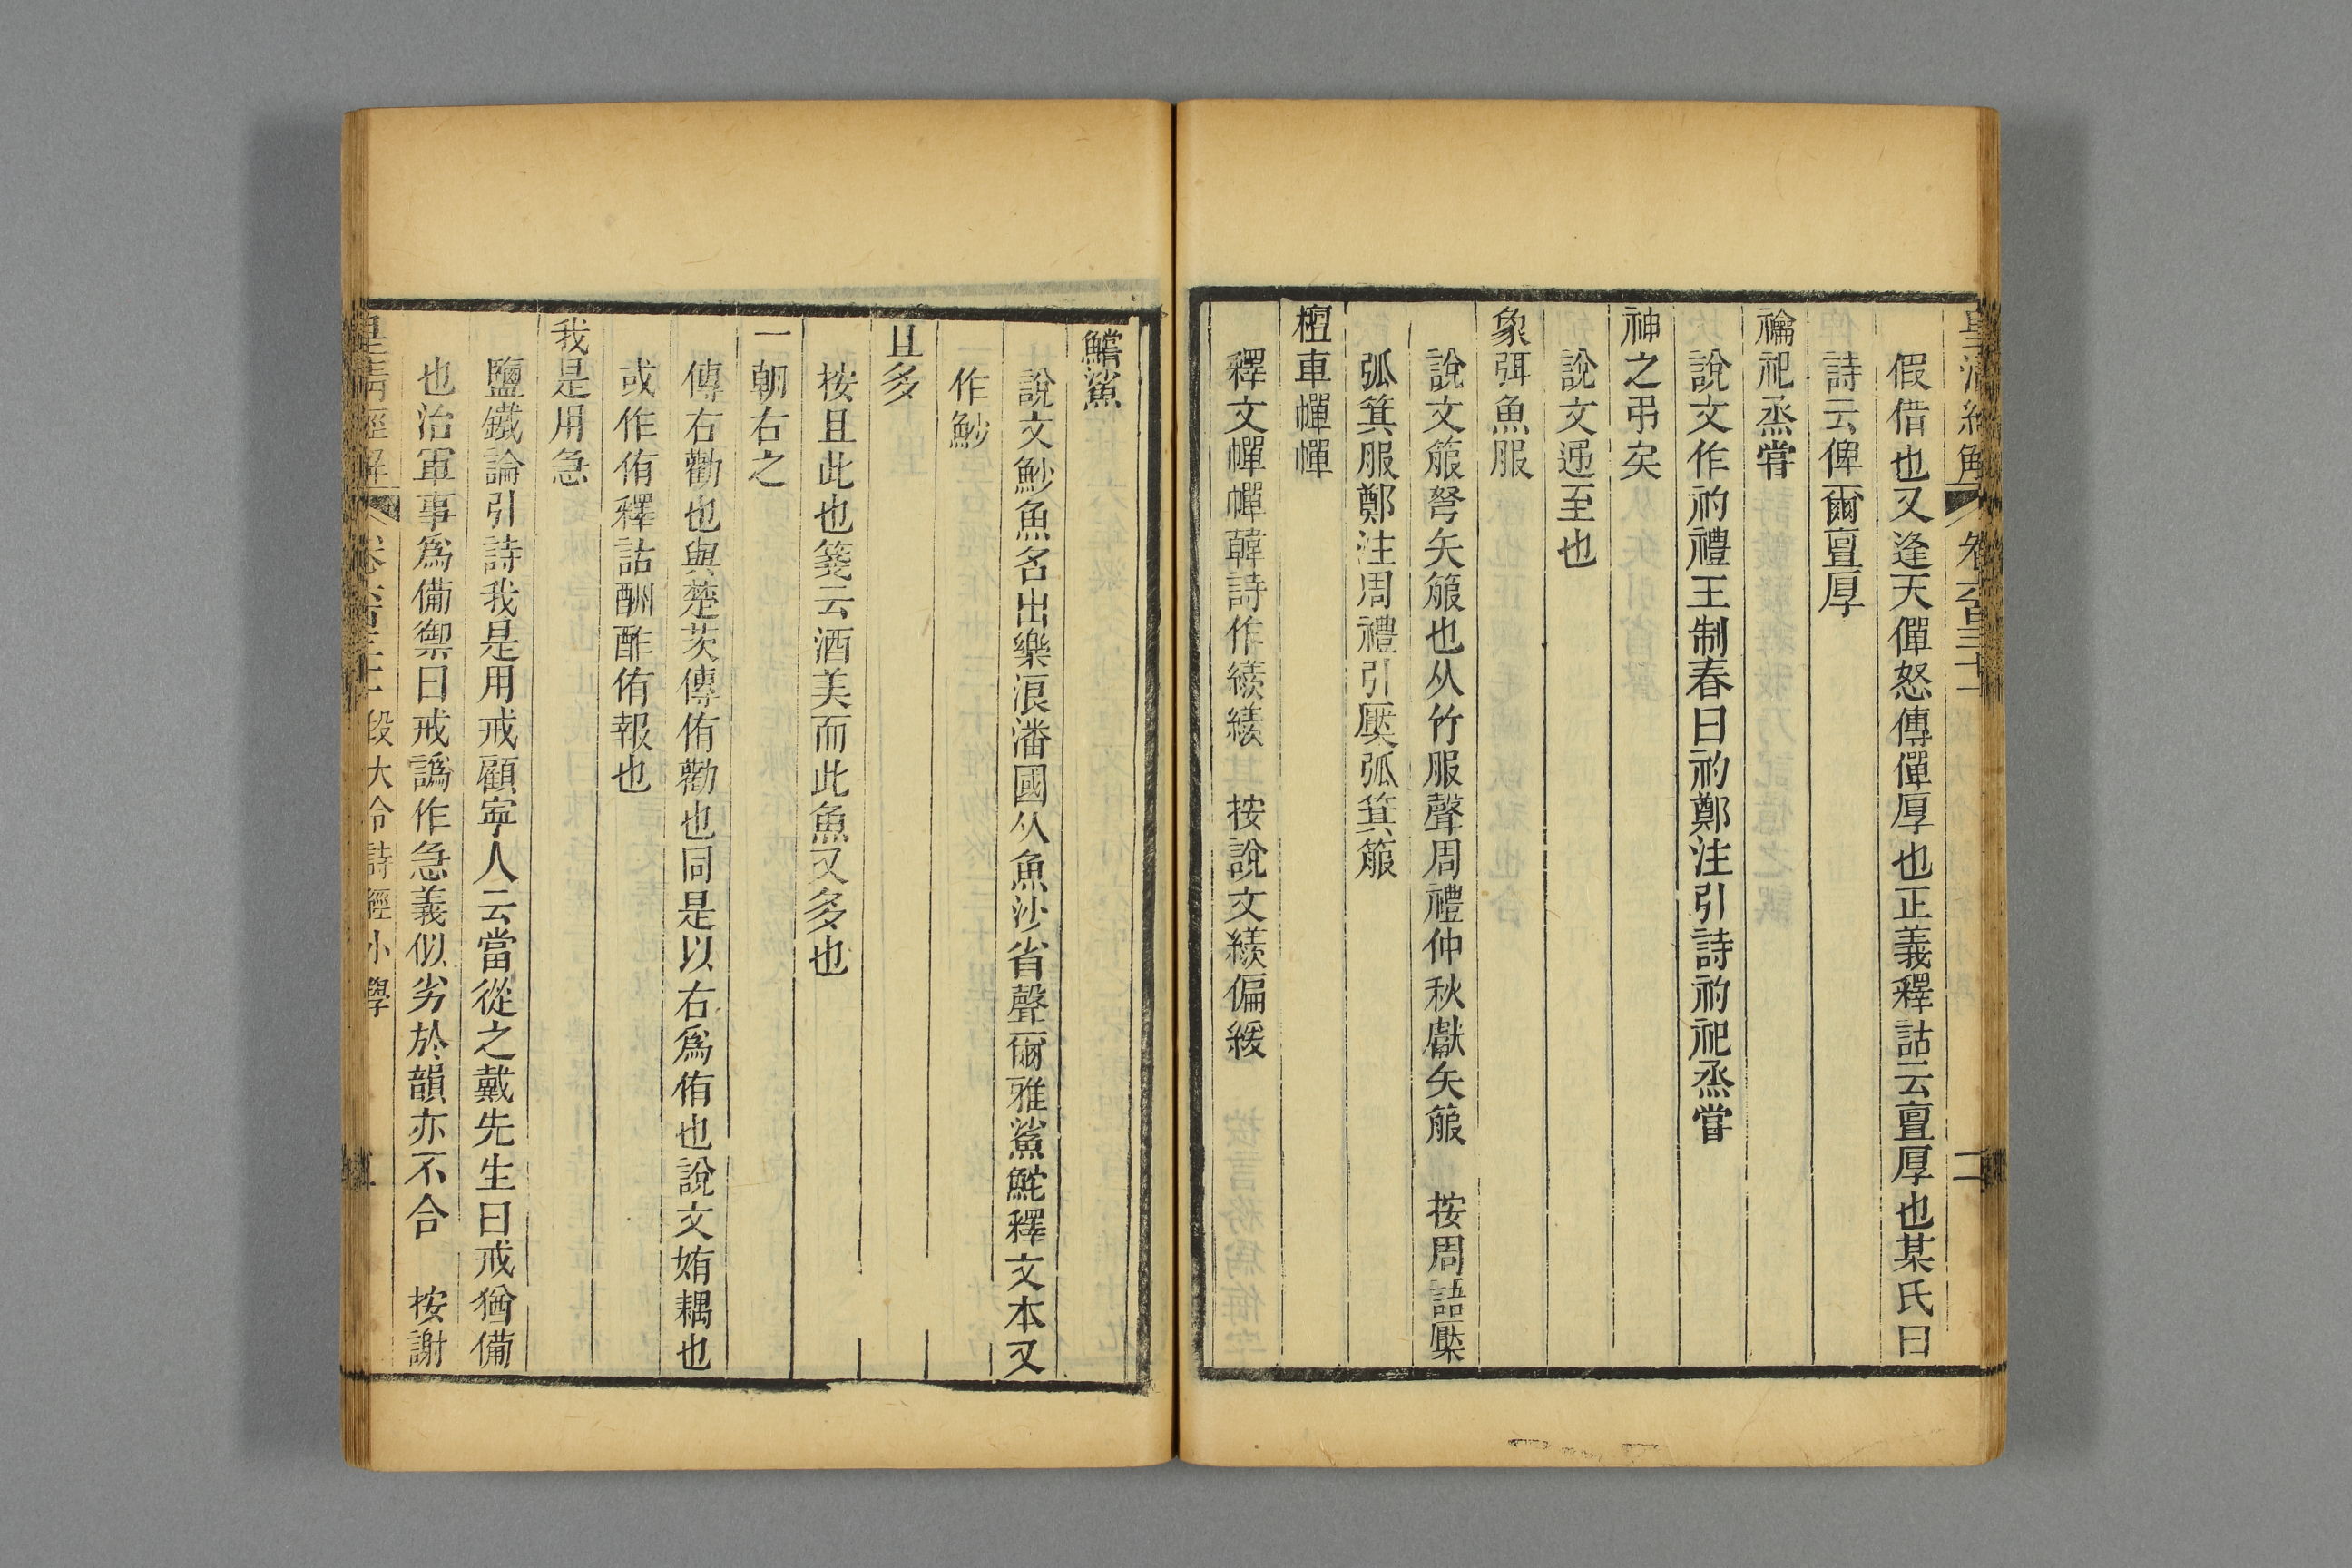 皇清經解 卷六百三十一 二
假借也又逢天僤怒傳僤厚也正義釋詁云亶厚也某氏曰
詩云俾爾亶厚
禴祀烝嘗
說文作礿禮王制春曰礿鄭注引詩礿祀烝嘗
神之弔矣
說文𨒫至也
象弭魚服
說文箙弩矢箙也从竹服聲周禮仲秋獻矢箙 按周語檿
弧箕服鄭注周禮引檿弧箕箙
檀車幝幝
釋文幝幝韓詩作繟繟 按說文繟偏緩
鱨鯊
說文魦魚名出樂浪潘國从魚沙省聲爾雅鯊鮀釋文本又
作魦
且多
按且此也箋云酒美而此魚又多也
一朝右之
傳右勸也與楚茨傳侑勸也同是以右爲侑也說文姷耦也
或作侑釋詁酬酢侑報也
我是用急
鹽鐵論引詩我是用戒顧寧人云當從之戴先生曰戒猶備
也治軍事爲備禦曰戒譌作急義似劣於韻亦不合 按謝
皇清經解 卷六百三十一 段大令詩經小學